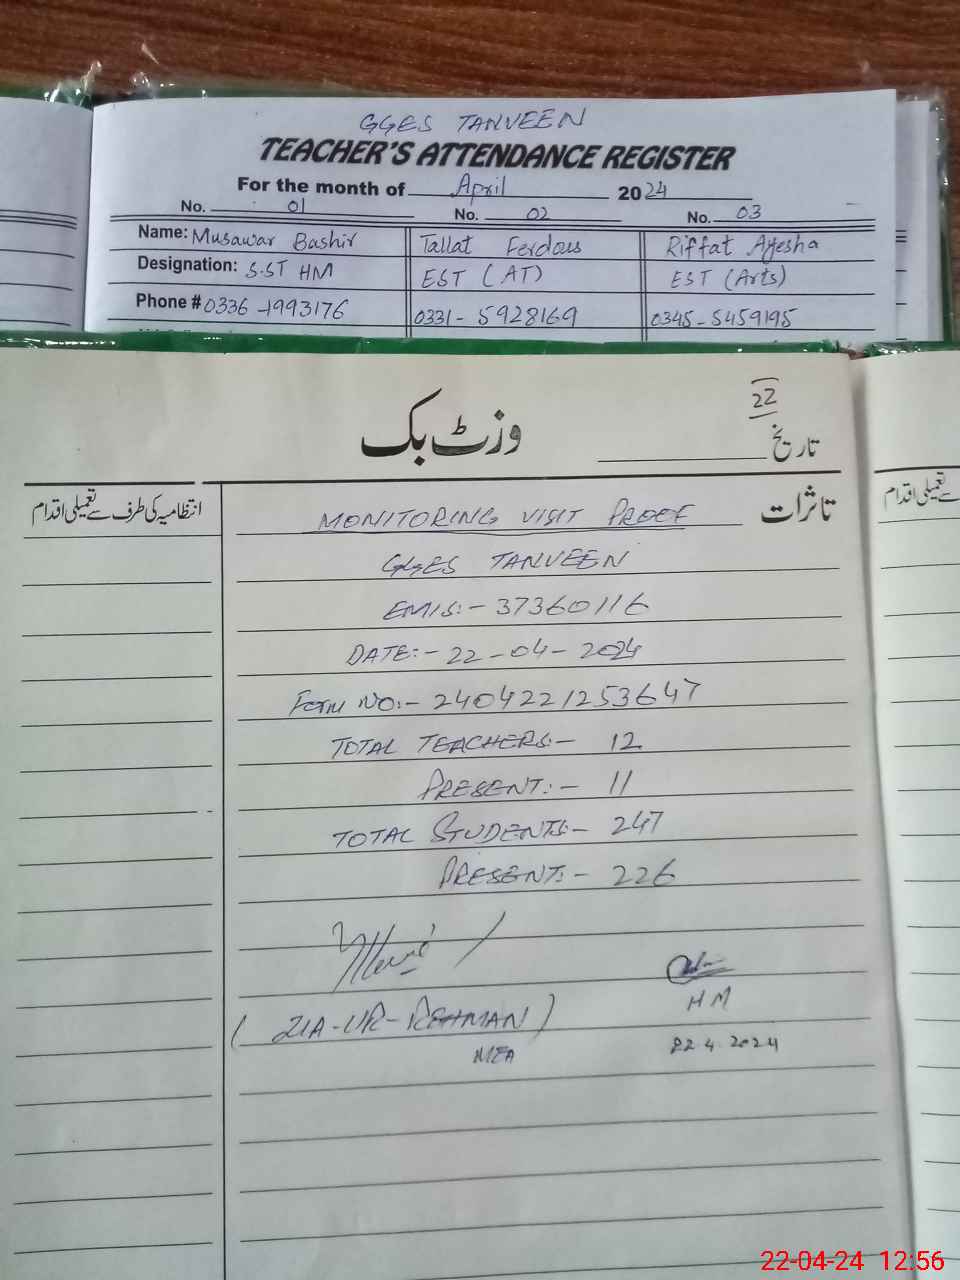 GGES TANVEEN
TEACHER'S ATTENDANCE REGISTER
For the month of April 2024
No. 01 No. 02 No. 03
Name: Musawar Bashir Tallat Ferdous Riffat Ayesha
Designation: S.ST HM EST (AT) EST (Arts)
Phone # 0336-1993176 0331-5928169 0345-5459195
22
وزٹ بک
تاریخ
تاثرات
انتظامیہ کی طرف سے تعمیلی اقدام
MONITORING VISIT PROOF
GGES TANVEEN
EMIS:- 37360116
DATE:- 22-04-2024
Form NO:- 2404221253647
TOTAL TEACHERS:- 12
PRESENT:- 11
TOTAL STUDENTS:- 247
PRESENT:- 226
(ZIA-UR-REHMAN)
MEA
HM
22.4.2024
22-04-24 12:56